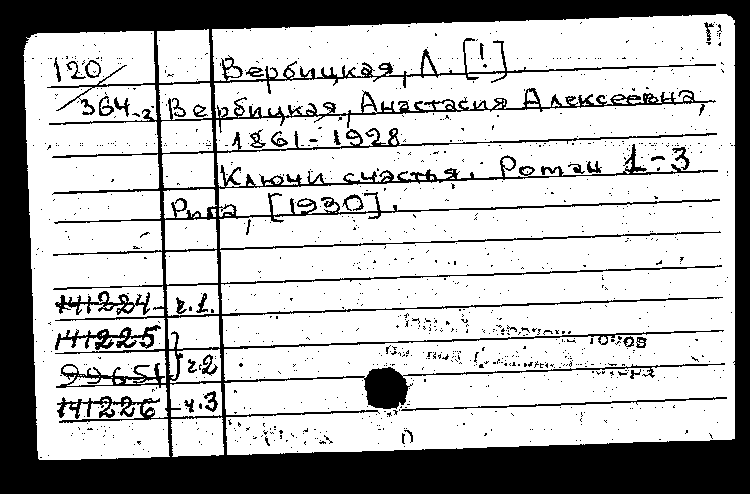 П
120 Вербицкая, Л. [!]
364-2 Вербицкая, Анастасия Алексеевна,
1861-1928
Ключи счастья. Роман 1-3
Рига, [1930].
141224 - ч.1.
141225 } ч.2
99651
141226 - ч.3